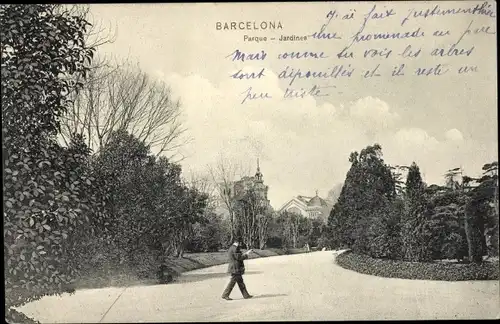 BARCELONA
Parque - Jardines
J'ai fait justement hier
une promenade au parc
Mais comme tu vois les arbres
sont dépouillés et il reste un
peu triste.